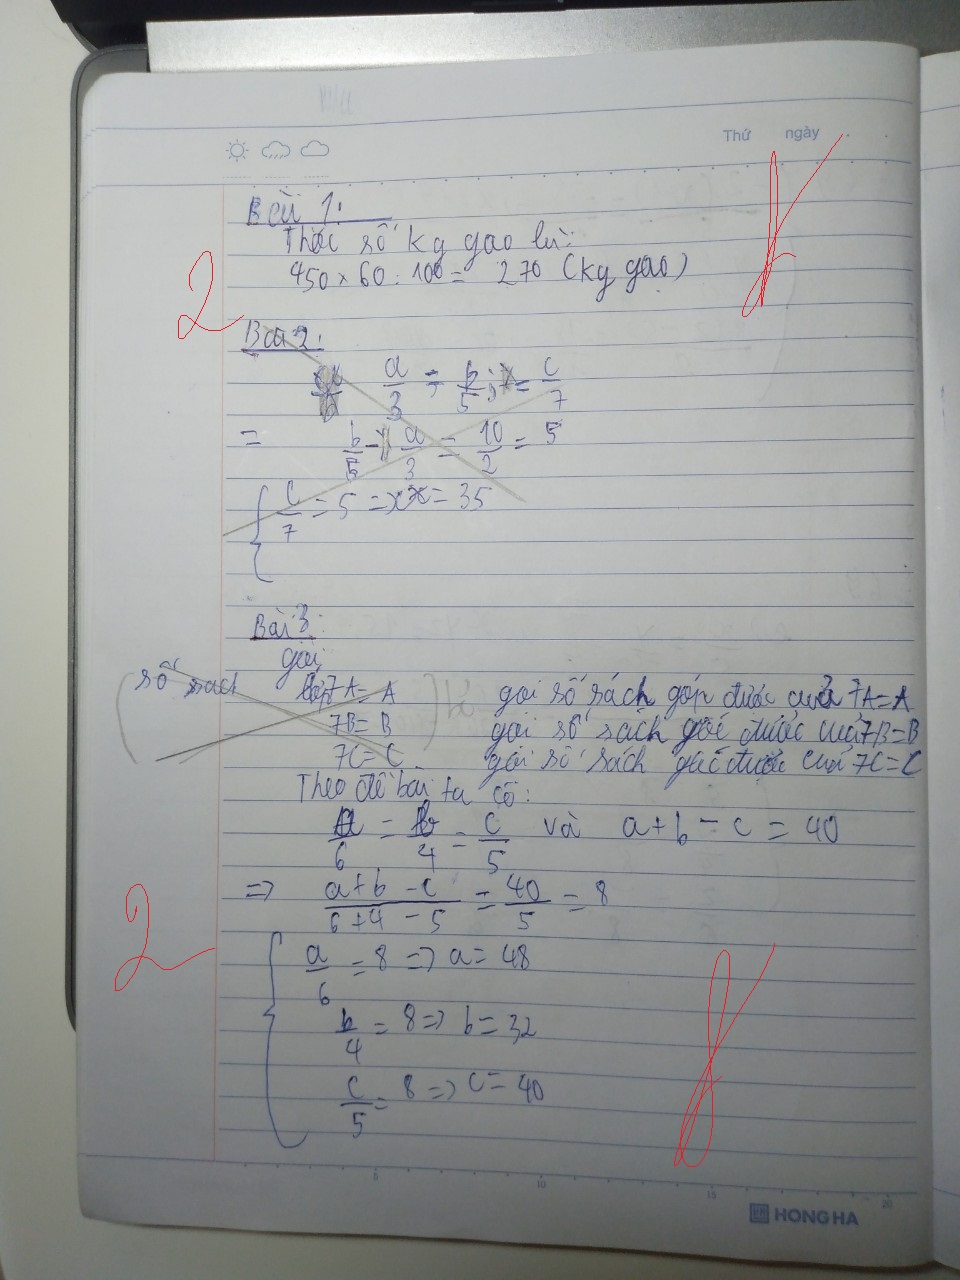 Thứ ngày
Bài 1:
Thóc số kg gạo là:
450 × 60 : 100 = 270 (kg gạo)
2
Bài 2:
a/3 = b/5; = c/7
= b/5 - a/3 = 10/2 = 5
c/7 = 5 => x = 35
Bài 3:
gọi
số sách lớp 7A = A
7B = B
7C = C
gọi số sách góp được của 7A = A
gọi số sách góp được của 7B = B
gọi số sách góp được của 7C = C
Theo đề bài ta có:
a/6 = b/4 = c/5 và a + b - c = 40
=> a + b - c / 6 + 4 - 5 = 40/5 = 8
2
a/6 = 8 => a = 48
b/4 = 8 => b = 32
c/5 = 8 => c = 40
5 10 15 20
HH HONG HA